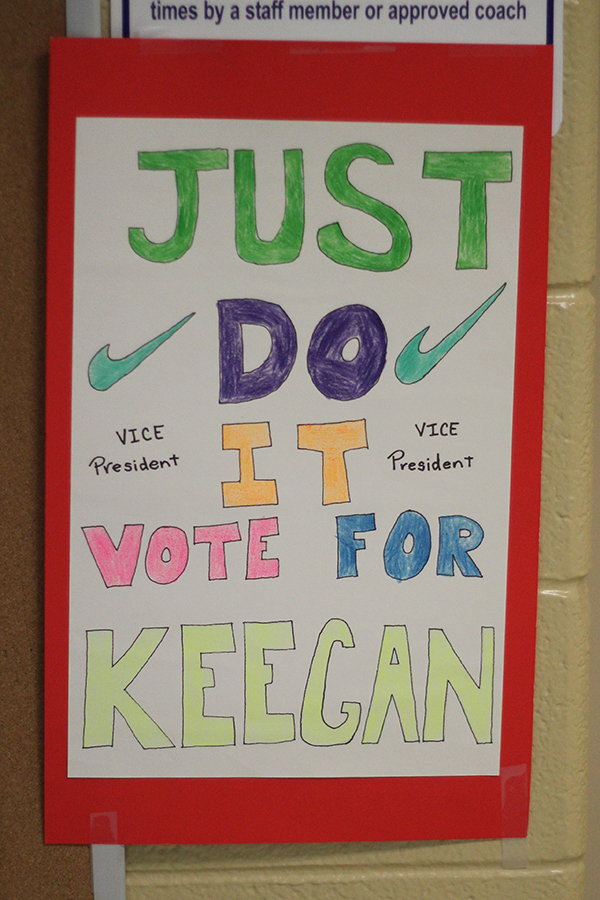 times by a staff member or approved coach
JUST
DO
IT
VICE President
VICE President
VOTE FOR
KEEGAN